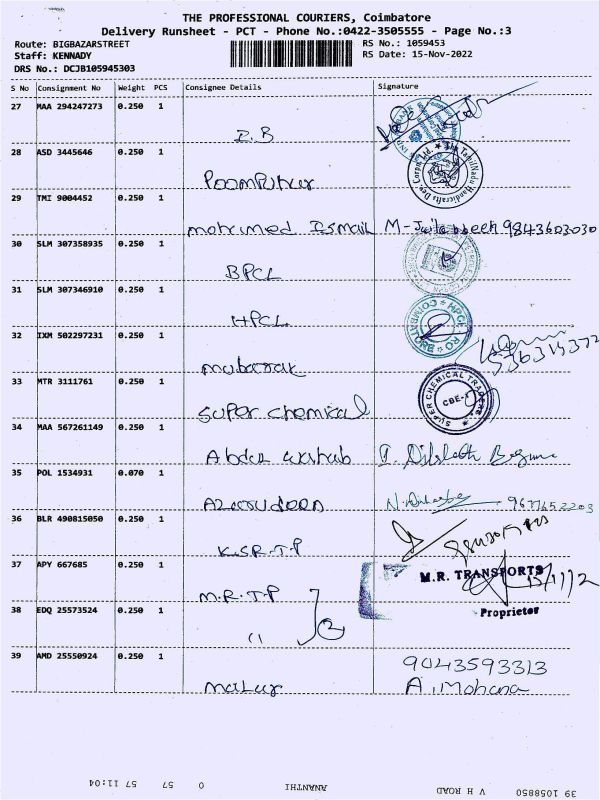 THE PROFESSIONAL COURIERS, Coimbatore
Delivery Runsheet - PCT - Phone No.:0422-3505555 - Page No.:3
Route: BIGBAZARSTREET RS No.: 1059453
Staff: KENNADY RS Date: 15-Nov-2022
DRS No.: DCJB105945303
S No Consignment No Weight PCS Consignee Details Signature
27 MAA 294247273 0.250 1
I.B
28 ASD 3445646 0.250 1
Poompuhar
Corpn. Ltd. ★ The TamilNadu Handicrafts Dev.
29 TMI 9004452 0.250 1
mohamed Ismail M- 9843603030
30 SLM 307358935 0.250 1
BPCL
31 SLM 307346910 0.250 1
HPCL
HPCL RO ★ COIMBATORE ★
32 IXM 502297231 0.250 1
mubarak
33 MTR 3111761 0.250 1
super chemical
SUPER CHEMICAL TRADERS
CBE-1
34 MAA 567261149 0.250 1
Abdul wahab Begum
35 POL 1534931 0.070 1
9677652203
36 BLR 490815050 0.250 1
K.S.R.T.P
37 APY 667685 0.250 1
M.R.T.P
M.R. TRANSPORTS
Proprietor
38 EDQ 25573524 0.250 1
(2
39 AMD 25550924 0.250 1
9043593313
A. Mohana
39 1058850 V H ROAD ANANTHI 0 57 57 11:04